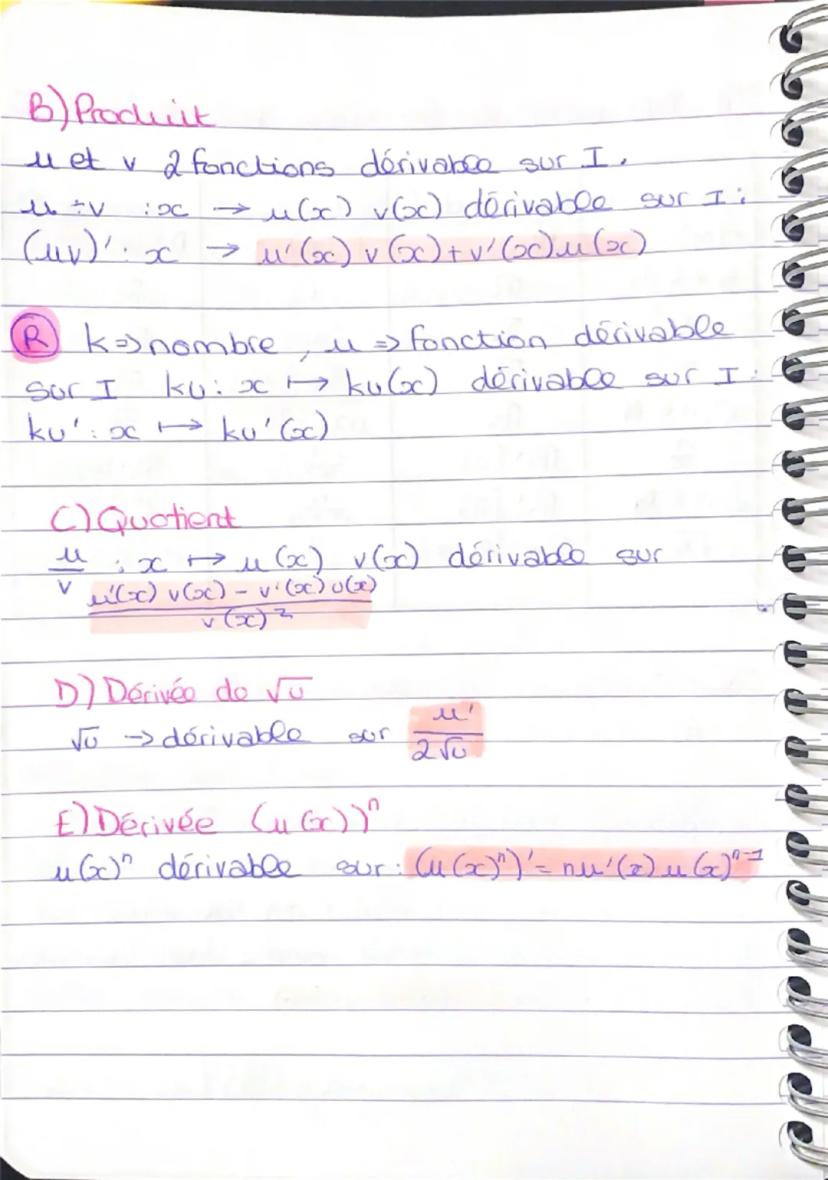 B) Produit
u et v 2 fonctions dérivable sur I.
u ÷ v : x → u(x) v(x) dérivable sur I :
(uv)' : x → u'(x) v(x) + v'(x) u(x)
R k => nombre, u => fonction dérivable
sur I ku : x ↦ ku(x) dérivable sur I :
ku' : x ↦ ku'(x)
C) Quotient
u/v : x ↦ u(x) v(x) dérivable sur
(u'(x) v(x) - v'(x) u(x))/(v(x)²)
D) Dérivée de √u
√u → dérivable sur u'/(2√u)
E) Dérivée (u(x))ⁿ
u(x)ⁿ dérivable sur : (u(x)ⁿ)' = nu'(x) u(x)ⁿ⁻¹